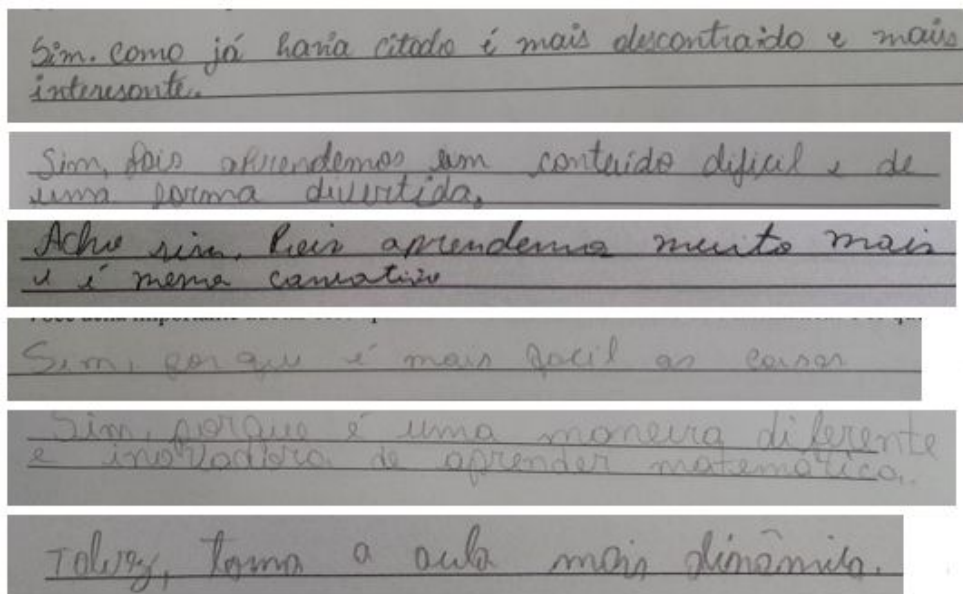 Sim. como já havia citado é mais descontraido e mais
interesante.
Sim, pois aprendemos um conteúdo dificil e de
uma forma divertida.
Acho sim, Pois aprendemos muito mais
e é menos cansativo
Sim, porque é mais facil as coisas
Sim, porque é uma maneira diferente
e inovadora de aprender matemática.
Talvez, torna a aula mais dinâmica.